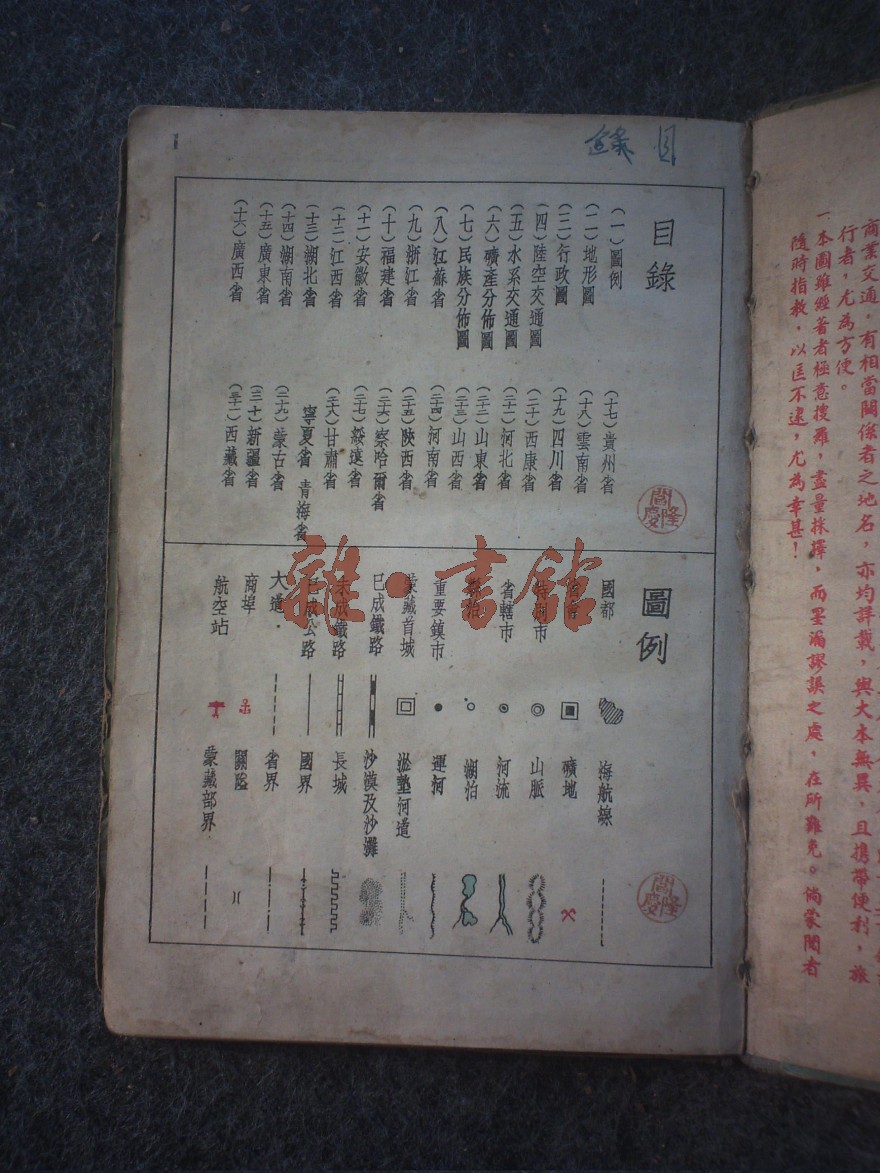 目錄
(一)圖例
(二)地形圖
(三)行政圖
(四)陸空交通圖
(五)水系交通圖
(六)礦產分佈圖
(七)民族分佈圖
(八)江蘇省
(九)浙江省
(十)福建省
(十一)安徽省
(十二)江西省
(十三)湖北省
(十四)湖南省
(十五)廣東省
(十六)廣西省
(十七)貴州省
(十八)雲南省
(十九)四川省
(二十)西康省
(二一)河北省
(二二)山東省
(二三)山西省
(二四)河南省
(二五)陝西省
(二六)察哈爾省
(二七)綏遠省
(二八)甘肅省
寧夏省 青海省
(二九)蒙古省
(三十)新疆省
(三一)西藏省
圖例
國都
省會
特別市
省轄市
縣治
重要鎮市
蒙藏首城
已成鐵路
未成鐵路
已成公路
大道
商埠
航空站
海航線
礦地
山脈
河流
湖泊
運河
淤墊河道
沙漠及沙灘
長城
國界
省界
關隘
蒙藏部界
商業交通,有相當關係者之地名,亦均詳載,與大本無異,且携帶便利,旅
行者,尤為方便。
一.本圖雖經著者極意搜羅,盡量採擇,而罣漏謬誤之處,在所難免。倘蒙閱者
隨時指教,以匡不逮,尤為幸甚!
雜·書館
目錄